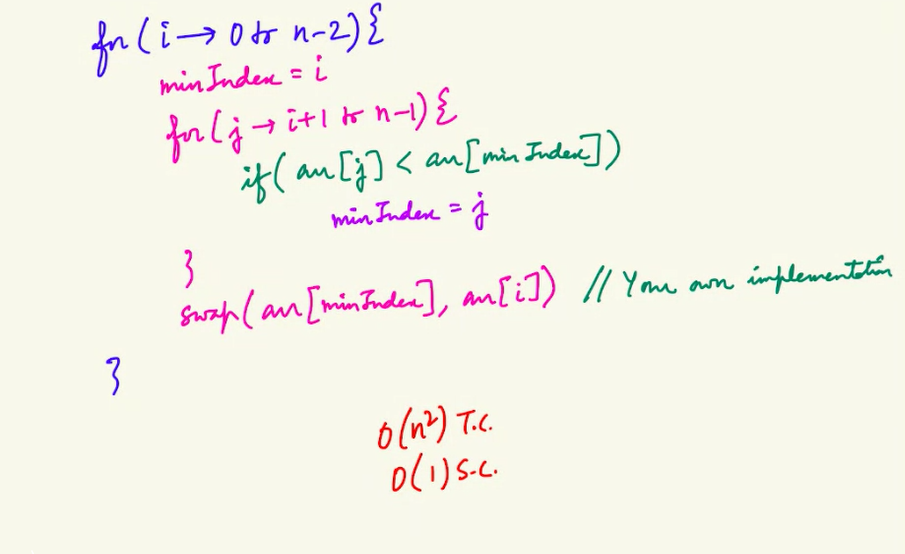 for(i→0 to n-2){
minIndex = i
for(j→i+1 to n-1){
if(arr[j] < arr[minIndex])
minIndex = j
}
swap(arr[minIndex], arr[i]) // Your own implementation
}
O(n²) T.C.
O(1) S.C.